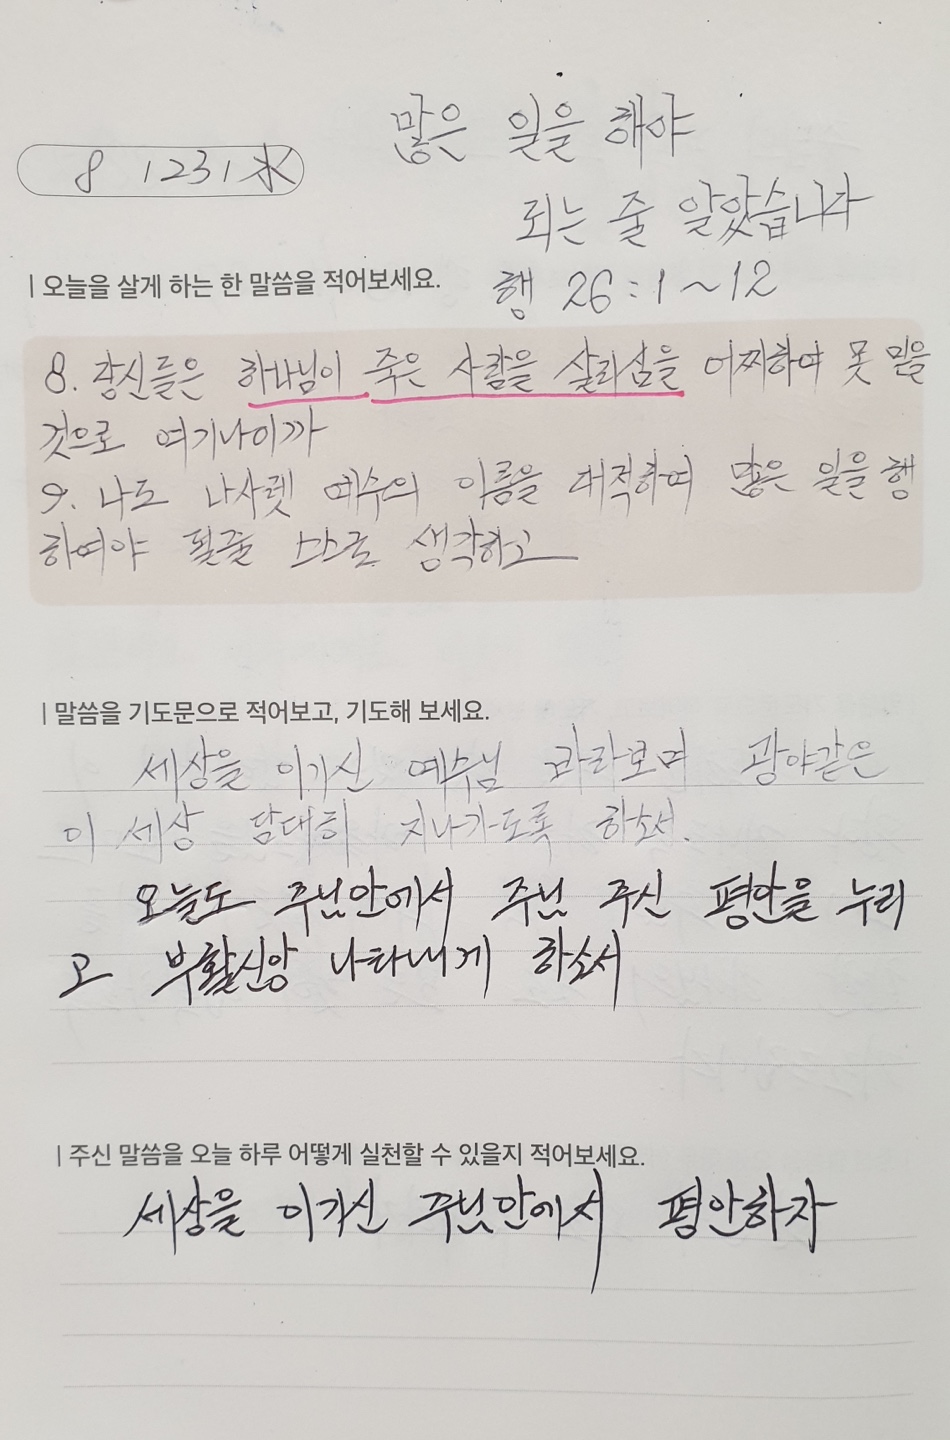 많은 일을 해야
8 1231 水
되는 줄 알았습니다
| 오늘을 살게 하는 한 말씀을 적어보세요.
행 26:1~12
8. 당신들은 하나님이 죽은 사람을 살리심을 어찌하여 못 믿을
것으로 여기나이까
9. 나도 나사렛 예수의 이름을 대적하여 많은 일을 행
하여야 될줄 스스로 생각하고
| 말씀을 기도문으로 적어보고, 기도해 보세요.
세상을 이기신 예수님 바라보며 광야같은
이 세상 담대히 지나가도록 하소서.
오늘도 주님안에서 주님 주신 평안을 누리
고 부활신앙 나타내게 하소서
| 주신 말씀을 오늘 하루 어떻게 실천할 수 있을지 적어보세요.
세상을 이기신 주님안에서 평안하자